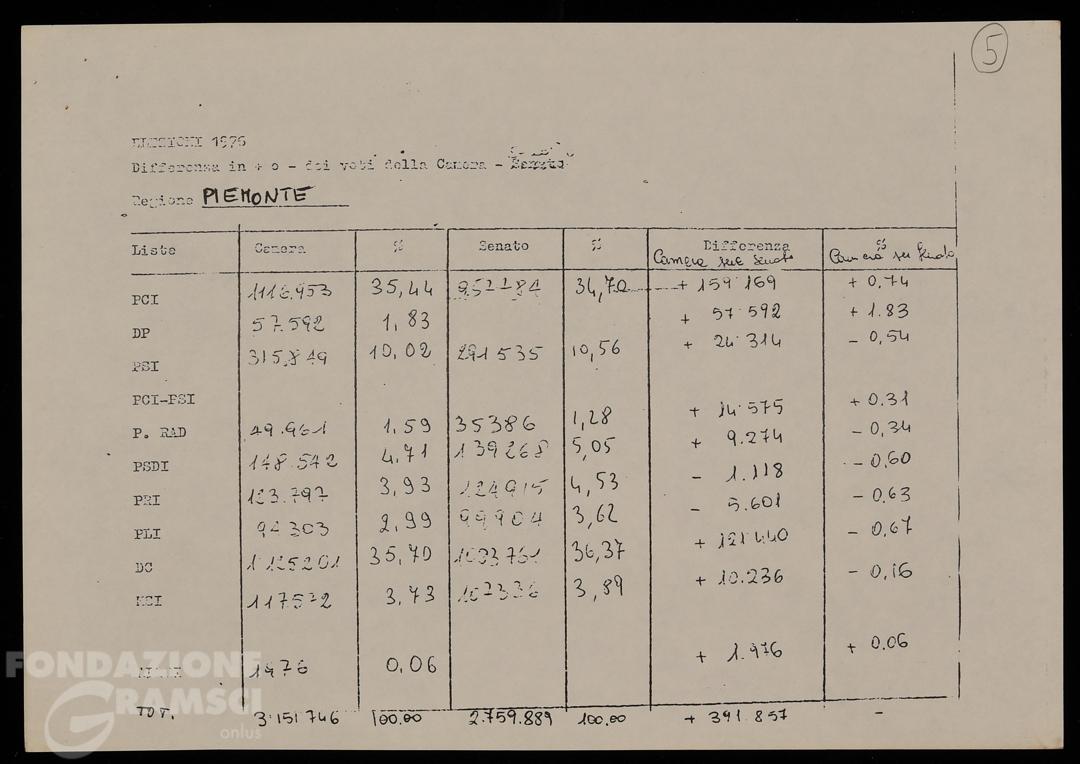 5
ELEZIONI 1976
Differenza in + o - dei voti della Camera - Senato
Regione PIEMONTE
Liste Camera % Senato % Differenza %
Camera sul Senato Camera su Senato
PCI 1116.953 35,44 957784 34,70 + 159.169 + 0,74
DP 57.592 1,83 + 57.592 + 1.83
PSI 315.849 10,02 291535 10,56 + 24.314 - 0,54
PCI-PSI
P. RAD 49.961 1,59 35386 1,28 + 14.575 + 0.31
PSDI 148.542 4,71 139268 5,05 + 9.274 - 0,34
PRI 123.797 3,93 124915 4,53 - 1.118 - 0,60
PLI 94303 2,99 99904 3,62 - 5.601 - 0.63
DC 1125201 35,70 1003761 36,37 + 121440 - 0,67
MSI 117572 3,73 107336 3,89 + 10.236 - 0,16
1976 0,06 + 1.976 + 0.06
TOT. 3.151746 100.00 2.759.889 100.00 + 391.857 -
FONDAZIONE
GRAMSCI
onlus